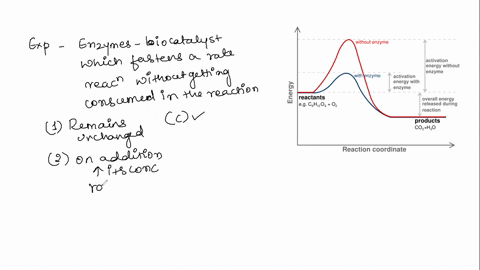 Exp - Enzymes - biocatalyst
which fastens a rate
reacn without getting
consumed in the reaction
(1) Remains
unchanged
(C) ✓
(2) on addition
↑ its conc
ro
without enzyme
with enzyme
activation
energy with
enzyme
activation
energy without
enzyme
reactants
e.g. C₆H₁₂O₆ + O₂
overall energy
released during
reaction
products
CO₂+H₂O
Energy
Reaction coordinate